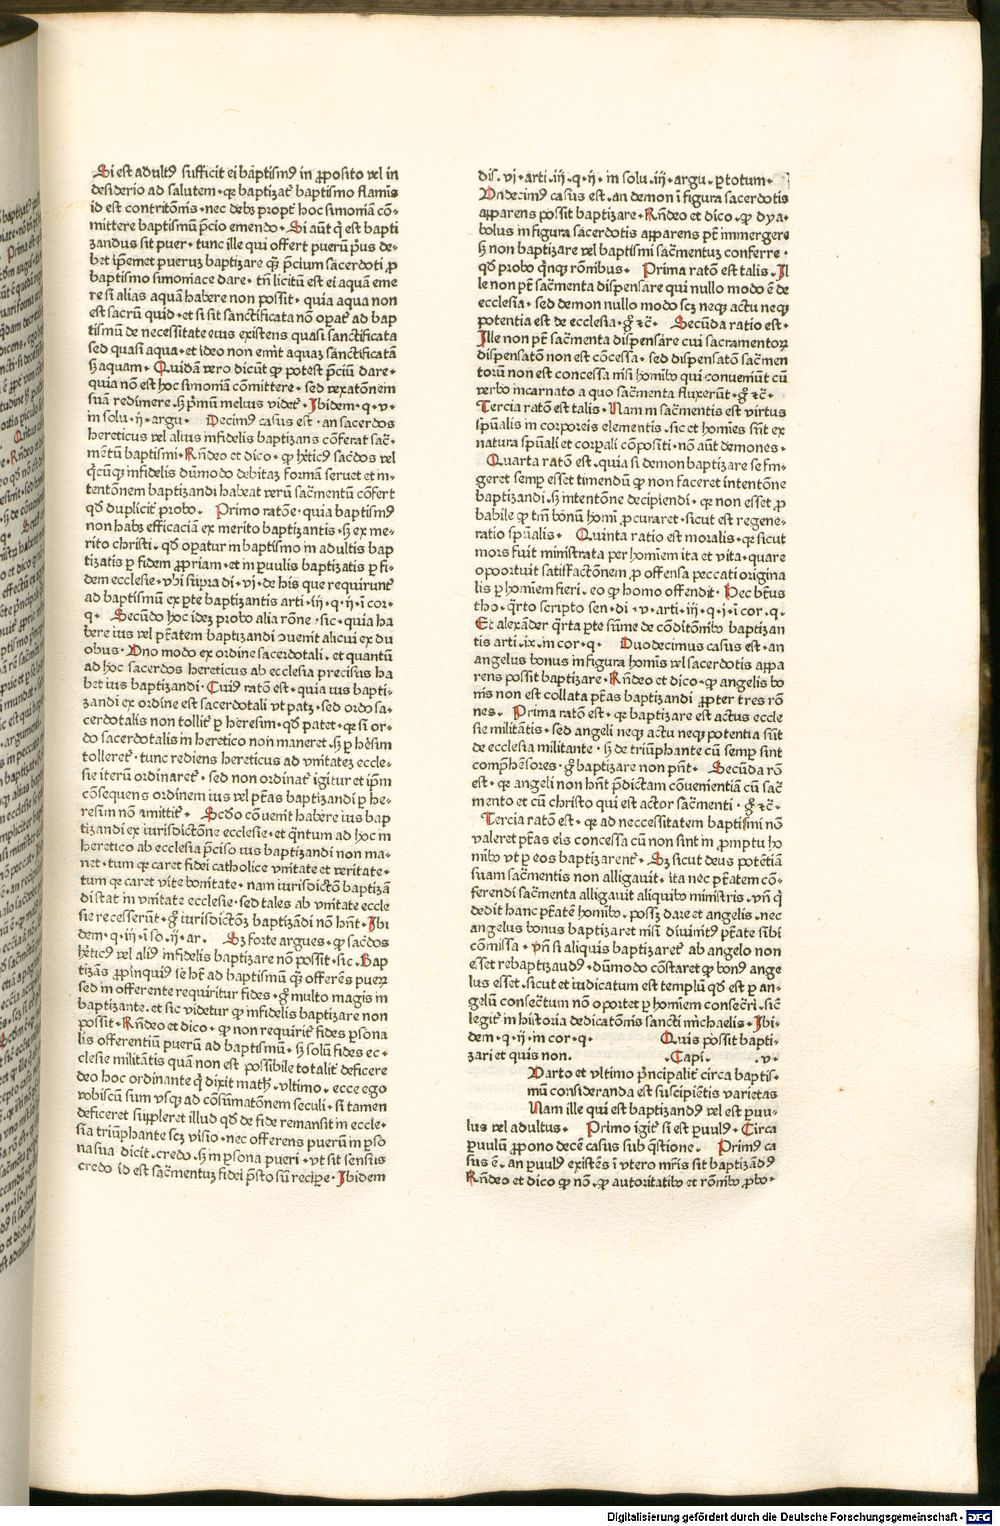 Si est adult⁹ sufficit ei baptism⁹ in ꝓposito vel in
desiderio ad salutem · qꝛ baptizat᷑ baptismo flamis
id est contritõnis · nec debꝫ ꝓpt᷑ hoc simoniã cõ-
mittere baptismũ p̃cio emendo · Si aũt q̃ est bapti
zandus sit puer · tunc ille qui offert puerũ p̃us de-
bet ip̃emet pueruꝫ baptizare q̃ꝫ p̃cium sacerdoti ꝓ
baptismo simoniace dare · tñ licitũ est ei aquã eme
re si alias aquã habere non possit · quia aqua non
est sacrũ quid · et si sit sanctificata nõ oꝑat᷑ ad bap
tismũ de necessitate eius existens quasi sanctificata
sed quasi aqua · et ideo non emit aquaꝫ sanctificatã
sꝫ aquam · Quidã vero dicũt ꝙ potest p̃ciũ dare ·
quia nõ est hoc simoniã cõmittere · sed vexatõnem
suã redimere · sꝫ p̃mũ melius videt᷑ · Ibidem · q · v ·
in solu · ij · argu · Decim⁹ casus est · an sacerdos
hereticus vel alius infidelis baptizans cõferat sac̃-
mẽtũ baptismi · Rñdeo et dico · ꝙ h̃tic⁹ sac̃dos vel
q̃cũq̃ infidelis dũmodo debitaꝫ formã seruet et in-
tentõnem baptizandi habeat verũ sac̃mentũ cõfert
qd̃ duplicit᷑ ꝓbo · Primo ratõne · quia baptism⁹
non habꝫ efficaciã ex merito baptizantis · sꝫ ex me-
rito christi · qd̃ oꝑatur in baptismo in adultis bap
tizatis ꝑ fidem ꝓpriam · et in ꝑuulis baptizatis ꝑ fi-
dem ecclesie · vbi supra di · vj · de his que requirunt᷑
ad baptismũ ex ꝑte baptizantis arti · iij · q · ij · ĩ cor·
q · Secũdo hoc ideꝫ ꝓbo alia rõne · sic · quia ha
bere ius vel p̃tatem baptizandi ꝯuenit alicui ex du
obus · Vno modo ex ordine sacerdotali · et quantũ
ad hoc sacerdos hereticus ab ecclesia precisus ha
bet ius baptizandi · Cui⁹ ratõ est · quia ius bapti-
zandi ex ordine est sacerdotali vt patꝫ · sed ordo sa-
cerdotalis non tollit᷑ ꝑ heresim · qd̃ patet · qꝛ si or-
do sacerdotalis in heretico non maneret · sꝫ ꝑ h̃esim
tolleret᷑ · tunc rediens hereticus ad vnitateꝫ eccle-
sie iterũ ordinaret᷑ · sed non ordinat᷑ igitur et ip̃m
cõsequens ordinem ius vel p̃tas baptizandi ꝑ he-
resim nõ amittit᷑ · Scd̃o cõuenit habere ius bap
tizandi ex iurisdictõne ecclesie · et q̃ntum ad hoc in
heretico ab ecclesia p̃ciso ius baptizandi non ma-
net · tum qꝛ caret fidei catholice vnitate et veritate ·
tum qꝛ caret vite bonitate · nam iurisdictõ baptizã
di stat in vnitate ecclesie · sed tales ab vnitate eccle
sie recesserũt · g̊ iurisdictõꝫ baptizãdi nõ hñt · Ibi
dem · q · iij · ĩ so · ij · ar · Sꝫ forte argues · ꝙ sac̃dos
h̃etic⁹ vel ali⁹ infidelis baptizare nõ possit · sic · Bap
tizãs ꝓpinqui⁹ se hꝫ ad baptismũ q̃ꝫ offerẽs pueꝝ
sed in offerente requiritur fides · g̊ multo magis in
baptizante · et sic videtur ꝙ infidelis baptizare non
possit · Rñdeo et dico · ꝙ non requirit᷑ fides ꝑsona
lis offerentiũ puerũ ad baptismũ · sꝫ solũ fides ec-
clesie militãtis quã non est possibile totalit᷑ deficere
deo hoc ordinante q̃ dixit math̃ · vltimo · ecce ego
vobiscũ sum vsqꝫ ad cõsũmatõnem seculi · si tamen
deficeret suppleret illud qd̃ de fide remansit in eccle-
sia triũphante scꝫ visio · nec offerens puerũ in ꝑso
na sua dicit · credo · sꝫ in ꝑsona pueri · vt sit sensus
credo id est sac̃mentuꝫ fidei p̃sto sũ recipe · Ibidem
dis · vj · arti · iij · q · ij · in solu · iij · argu · ꝑ totum ·
Vndecim⁹ casus est · an demon ĩ figura sacerdotis
apparens possit baptizare · Rñdeo et dico · ꝙ dya-
bolus in figura sacerdotis apparens p̃t immergere
sꝫ non baptizare vel baptismi sac̃mentuꝫ conferre ·
qd̃ ꝓbo q̃nqꝫ rõnibus · Prima ratõ est talis · Il
le non p̃t sac̃menta dispensare qui nullo modo ẽ de
ecclesia · sed demon nullo modo scꝫ neqꝫ actu neqꝫ
potentia est de ecclesia · g̊ ⁊c̃ · Secũda ratio est ·
Ille non p̃t sac̃menta dispensare cui sacramentoꝝ
dispensatõ non est cõcessa · sed dispensatõ sac̃men
torũ non est concessa nisi hoĩbꝰ qui conueniũt cũ
verbo incarnato a quo sac̃menta fluxerũt · g̊ ⁊c̃ ·
Tercia ratõ est talis · Nam in sacmentis est virtus
spũalis in corporeis elementis · sic et hoĩes sũt ex
natura spũali et corꝑali cõpositi · nõ aũt demones ·
Quarta ratõ est · quia si demon baptizare se fin-
geret semꝑ esset timendũ ꝙ non faceret intentõne
baptizandi · sꝫ intentõne decipiendi · qꝛ non esset ꝓ
babile ꝙ tm̃ bonũ homĩ ꝓcuraret · sicut est regene-
ratio spũalis · Quinta ratio est moralis · qꝛ sicut
mors fuit ministrata per homĩem ita et vita · quare
opoortuit satisfactõnem ꝓ offensa peccati origina
lis ꝑ homĩem fieri · eo ꝙ homo offendit · Hec bt̃us
tho · q̃rto scripto sen · di · v · arti · iij · q · j · ĩ cor · q ·
Et alexãder q̃rta ꝑte sũme de cõditõibꝰ baptizan
tis arti · ix · in cor · q · Duodecimus casus est · an
angelus bonus in figura homĩs vel sacerdotis appa
rens possit baptizare · Rñdeo et dico · ꝙ angelis bo
nis non est collata p̃tas baptizandi ꝓpter tres rõ
nes · Prima ratõ est · qꝛ baptizare est actus eccle
sie militãtis · sed angeli neqꝫ actu neqꝫ potentia sũt
de ecclesia militante · sꝫ de triũphante cũ semꝑ sint
comp̃hẽsores · g̊ baptizare non pñt · Secũda rõ
est · qꝛ angeli non hñt p̃dictam cõuenientiã cũ sac̃
mento et cũ christo qui est actor sac̃menti · g̊ ⁊c̃ ·
Tercia ratõ est · qꝛ ad neccessitatem baptismi nõ
valeret p̃tas eis concessa cũ non sint in ꝓmptu ho
mĩbꝰ vt ꝑ eos baptizarent᷑ · Sꝫ sicut deus potẽtiã
suam sac̃mentis non alligauit · ita nec p̃tatem cõ-
ferendi sac̃menta alligauit aliquibꝰ ministris · vñ q̃
dedit hanc p̃tatẽ homĩbꝰ · possꝫ dare et angelis · nec
angelus bonus baptizaret nisi diuinit⁹ p̃tate sibi
cõmissa · vñ si aliquis baptizaret᷑ ab angelo non
esset rebaptizand⁹ · dũmodo cõstaret ꝙ bon⁹ ange
lus esset · sicut et iudicatum est templũ qd̃ est ꝑ an-
gelũ consec̃tum nõ oportet ꝑ homĩem consec̃ri · sic̃
legit᷑ in historia dedicatõnis sancti mĩchaelis · Ibi-
dem · q · ij · in cor · q · Quis possit bapti-
zari et quis non. · Capi. · v ·
Varto et vltimo p̃ncipalit᷑ circa baptis-
mũ consideranda est suscipiẽtis varietas
Nam ille qui est baptizand⁹ vel est ꝑuu-
lus vel adultus · Primo igit᷑ si est ꝑuul⁹ · Circa
ꝑuulũ ꝓpono decẽ casus sub q̃stione · Prim⁹ ca
sus ẽ · an ꝑuul⁹ existẽs ĩ vtero mr̃is sit baptizãd⁹
Rñdeo et dico ꝙ nõ · ꝙ autoritatibꝰ et rõnibꝰ ꝓbo ·
Digitalisierung gefördert durch die Deutsche Forschungsgemeinschaft - DFG